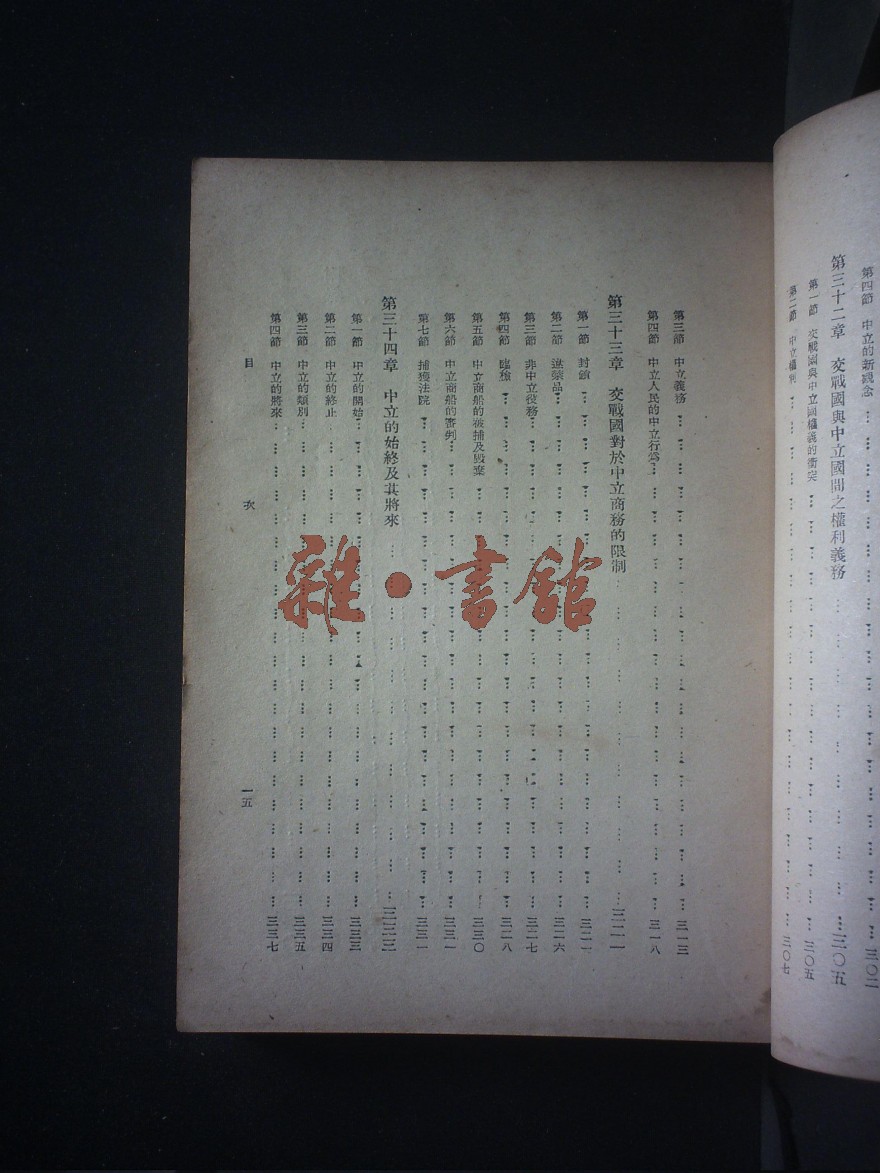 第四節 中立的新觀念 三〇二
第三十二章 交戰國與中立國間之權利義務 三〇五
第一節 交戰國與中立國權義的衝突 三〇五
第二節 中立權利 三〇七
第三節 中立義務 三一三
第四節 中立人民的中立行為 三一八
第三十三章 交戰國對於中立商務的限制 三二一
第一節 封鎖 三二一
第二節 違禁品 三二六
第三節 非中立役務 三二七
第四節 臨檢 三二八
第五節 中立商船的被捕及毀棄 三三〇
第六節 中立商船的審判 三三一
第七節 捕獲法院 三三一
第三十四章 中立的始終及其將來
第一節 中立的開始 三三三
第二節 中立的終止 三三四
第三節 中立的類別 三三五
第四節 中立的將來 三三七
目次
一五
雜·書館